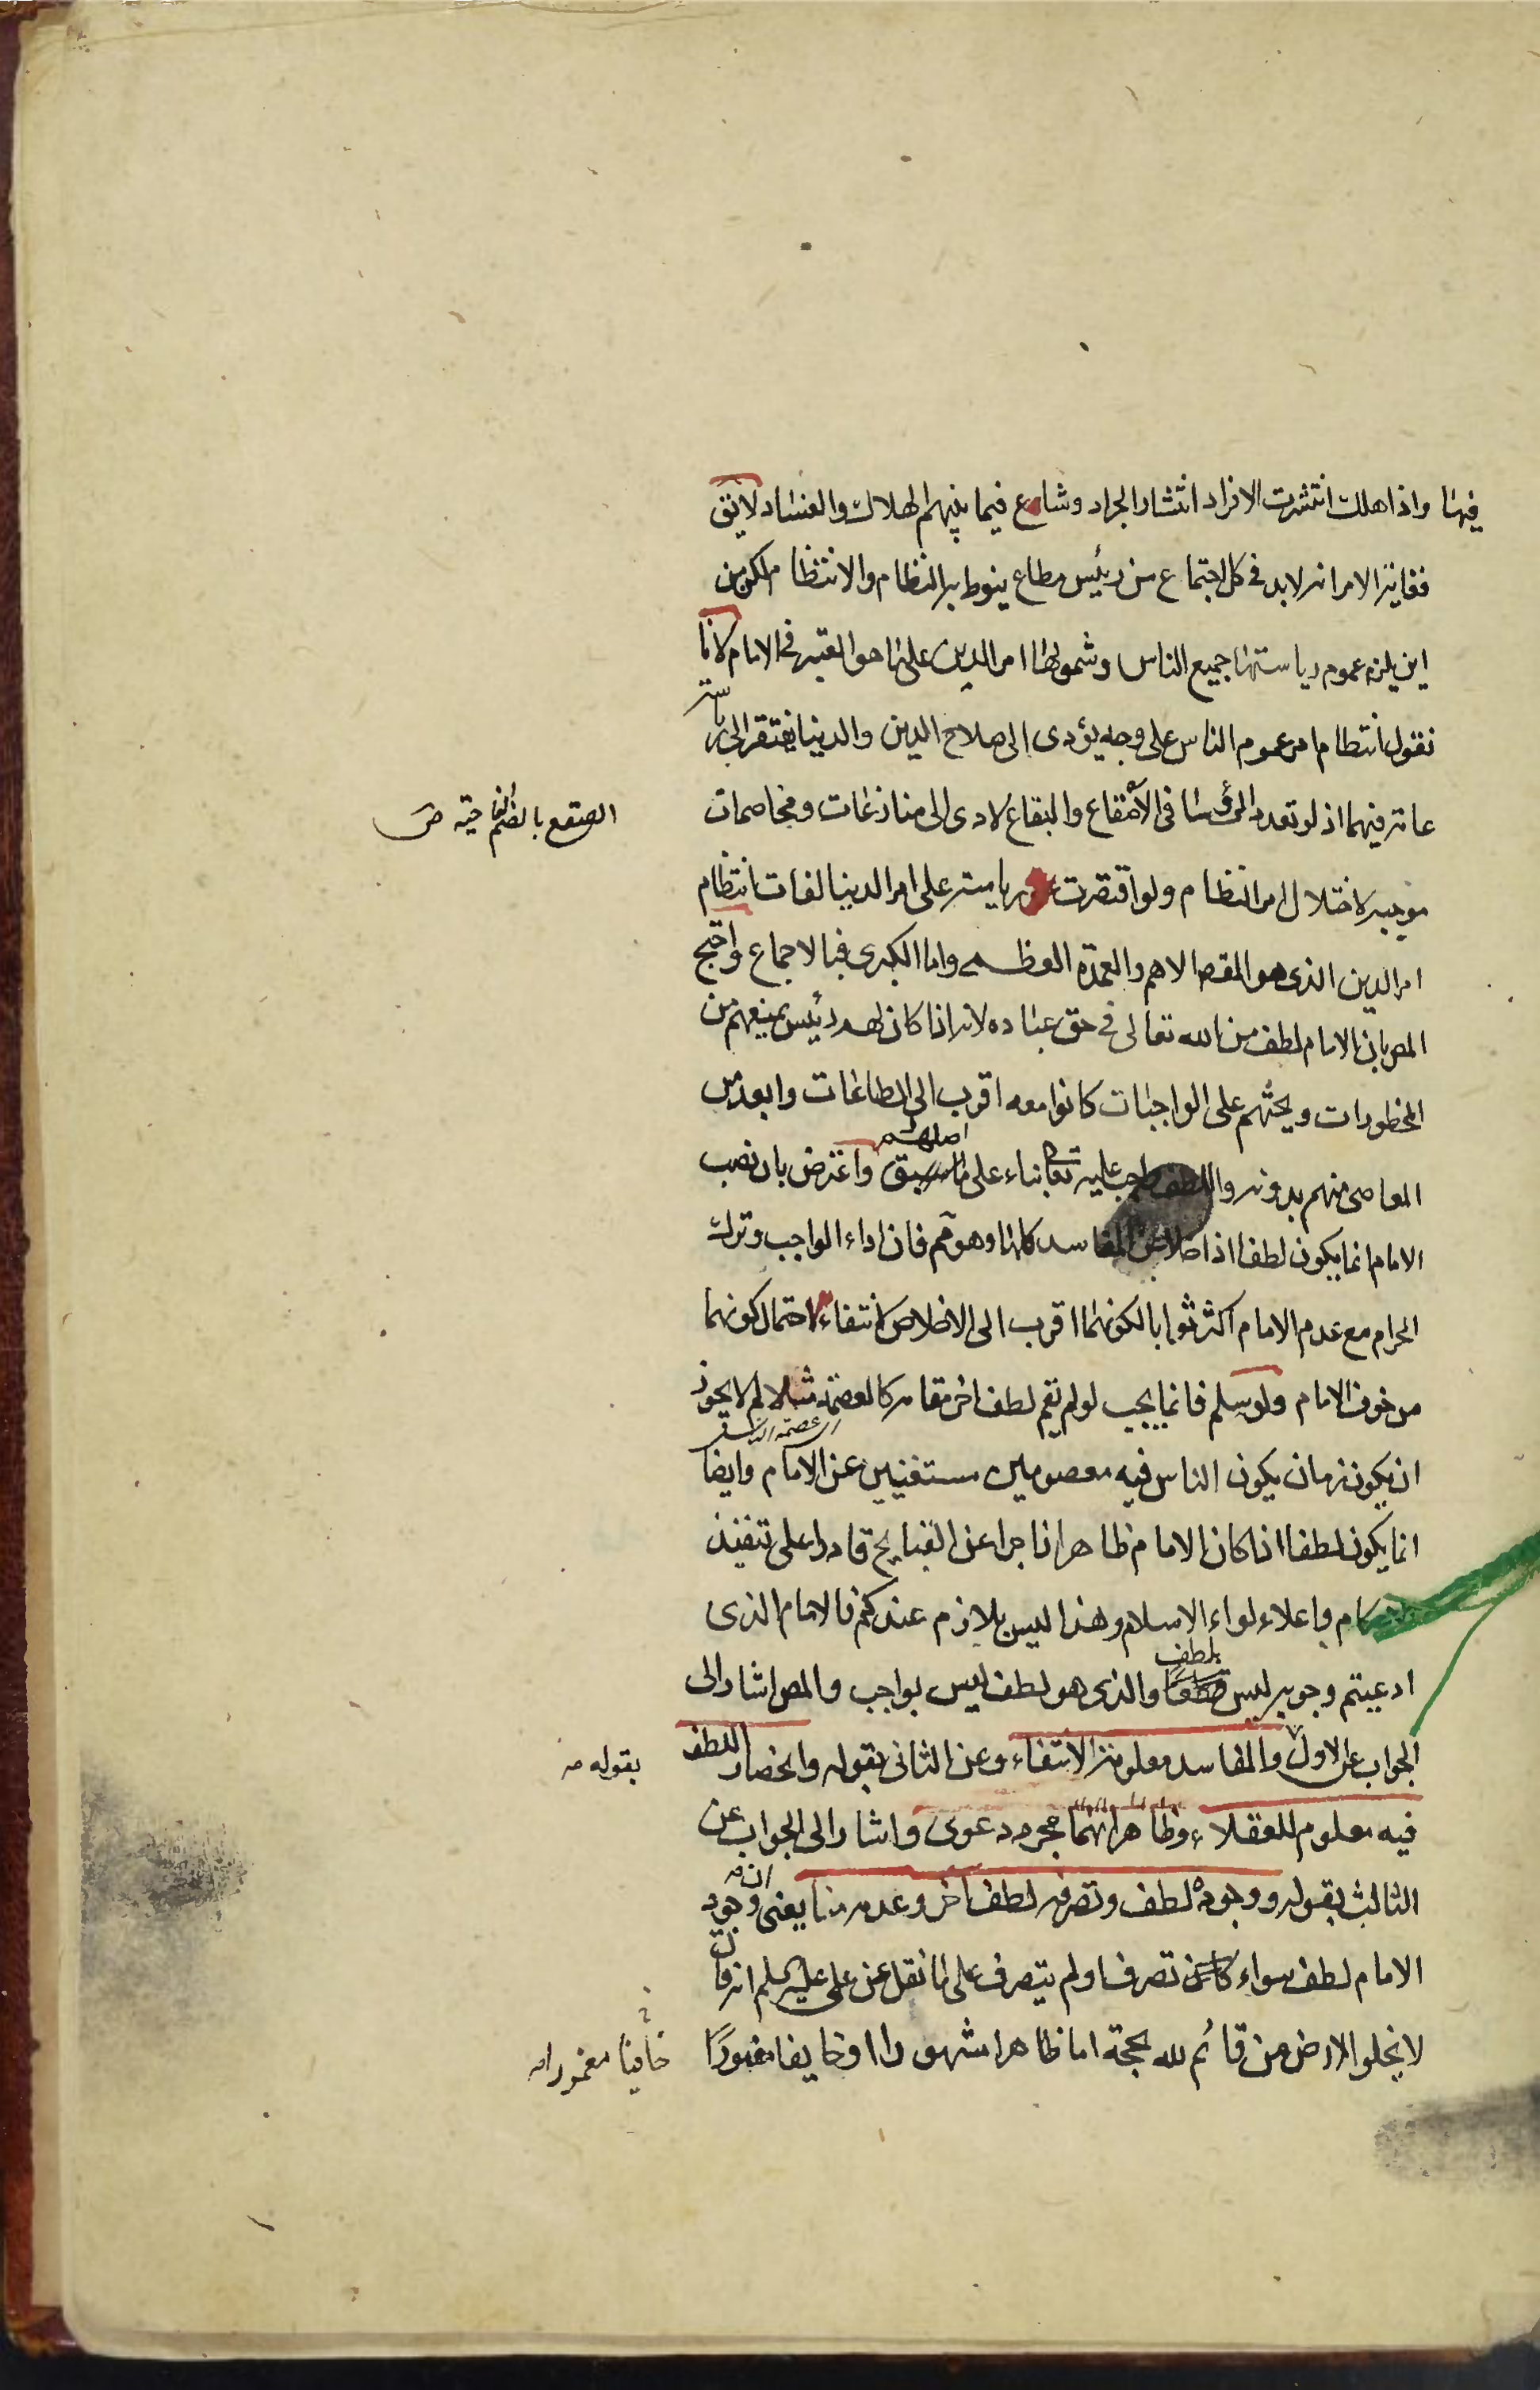 فيها واذا هلك انتشرت الافراد انتشار الجراد وشاع فيما بينهم الهلاك والفساد لا يق
فغاية الامر انه لابد فى كل اجتماع من رئيس مطاع ينوط به النظام والانتظام لكن من
اين يلزم عموم رياستها جميع الناس وشمولها امر الدين على ما هو المعتبر فى الامام لانا
نقول انتظام امر عموم الناس على وجه يؤدى الى صلاح الدين والدنيا يفتقر الى رياسته
عامة فيهما اذ لو تعدد الرؤسا فى الاصقاع والبقاع لادى الى منازعات ومخاصمات
الصقع بالضم الناحية ص
موجبه لاختلال امر النظام ولو اقتصرت رياسته على امر الدنيا لفات انتظام
امر الدين الذى هو المقص الاهم والعمدة العظمى واما الكبرى فبالاجماع واحتج
المص بان الامام لطف من الله تعالى فى حق عباده لانه اذا كان لهم رئيس يمنعهم من
المحظورات ويحثهم على الواجبات كانوا معه اقرب الى الطاعات وابعد من
المعاصى منهم بدونه واللطف واجب عليه تعا بناء على ما سبق اصلهم واعترض بان نصب
الامام انما يكون لطفا اذا خلا عن المفاسد كلها وهو مم فان اداء الواجب وترك
الحرام مع عدم الامام اكثر ثوابا لكونهما اقرب الى الاخلاص لانتفاء احتمال كونهما
من خوف الامام ولو سلم فانما يجب لو لم يقم لطف اخر مقامه كالعصمة مثلا لم لا يجوز
ان يكون زمان يكون الناس فيه معصومين مستغنيين عن الامام وايضا
انما يكون لطفا اذا كان الامام ظاهرا زاجرا عن القبايح قادرا على تنفيذ
الاحكام واعلاء لواء الاسلام وهذا ليس بلازم عندكم فالامام الذى
ادعيتم وجوبه ليس بلطف والذى هو لطف ليس بواجب والمص اشار الى
الجواب عن الاول والمفاسد معلومة الانتفاء وعن الثانى بقوله وانحصار اللطف
بقوله صه
فيه معلوم للعقلاء وظاهر انهما مجرد دعوى واشار الى الجواب عن
الثالث بقوله ووجوده لطف وتصرفه لطف اخر وعدمه منا يعنى ان وجود
الامام لطف سواء تصرف او لم يتصرف على ما نقل عن على عليه السلم انه قال
لا يخلو الارض من قائم لله بحجة اما ظاهرا مشهورا او خايفا مغمورا
خافيا مغمورا صه